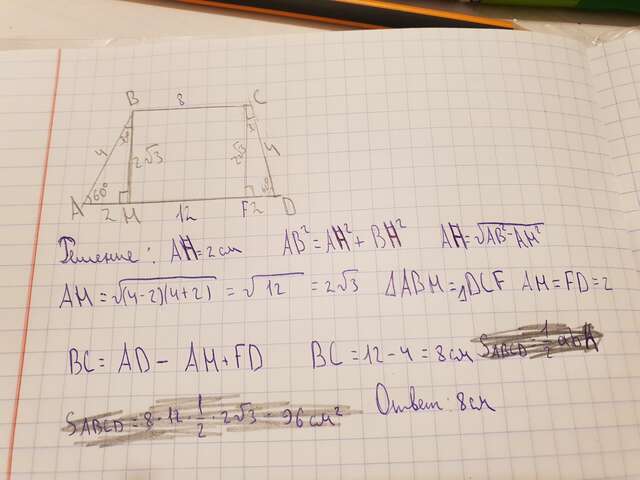 B 8 C
4 30° 2√3 2√3 4
A 60° 2 H 12 F 2 D
Решение: AH=2см AB²=AH²+BH² AH=√AB²-AM²
AH=√(4-2)(4+2) = √12 = 2√3 △ABH=△DCF AH=FD=2
BC= AD - AH+FD BC=12-4=8см
Ответ: 8см